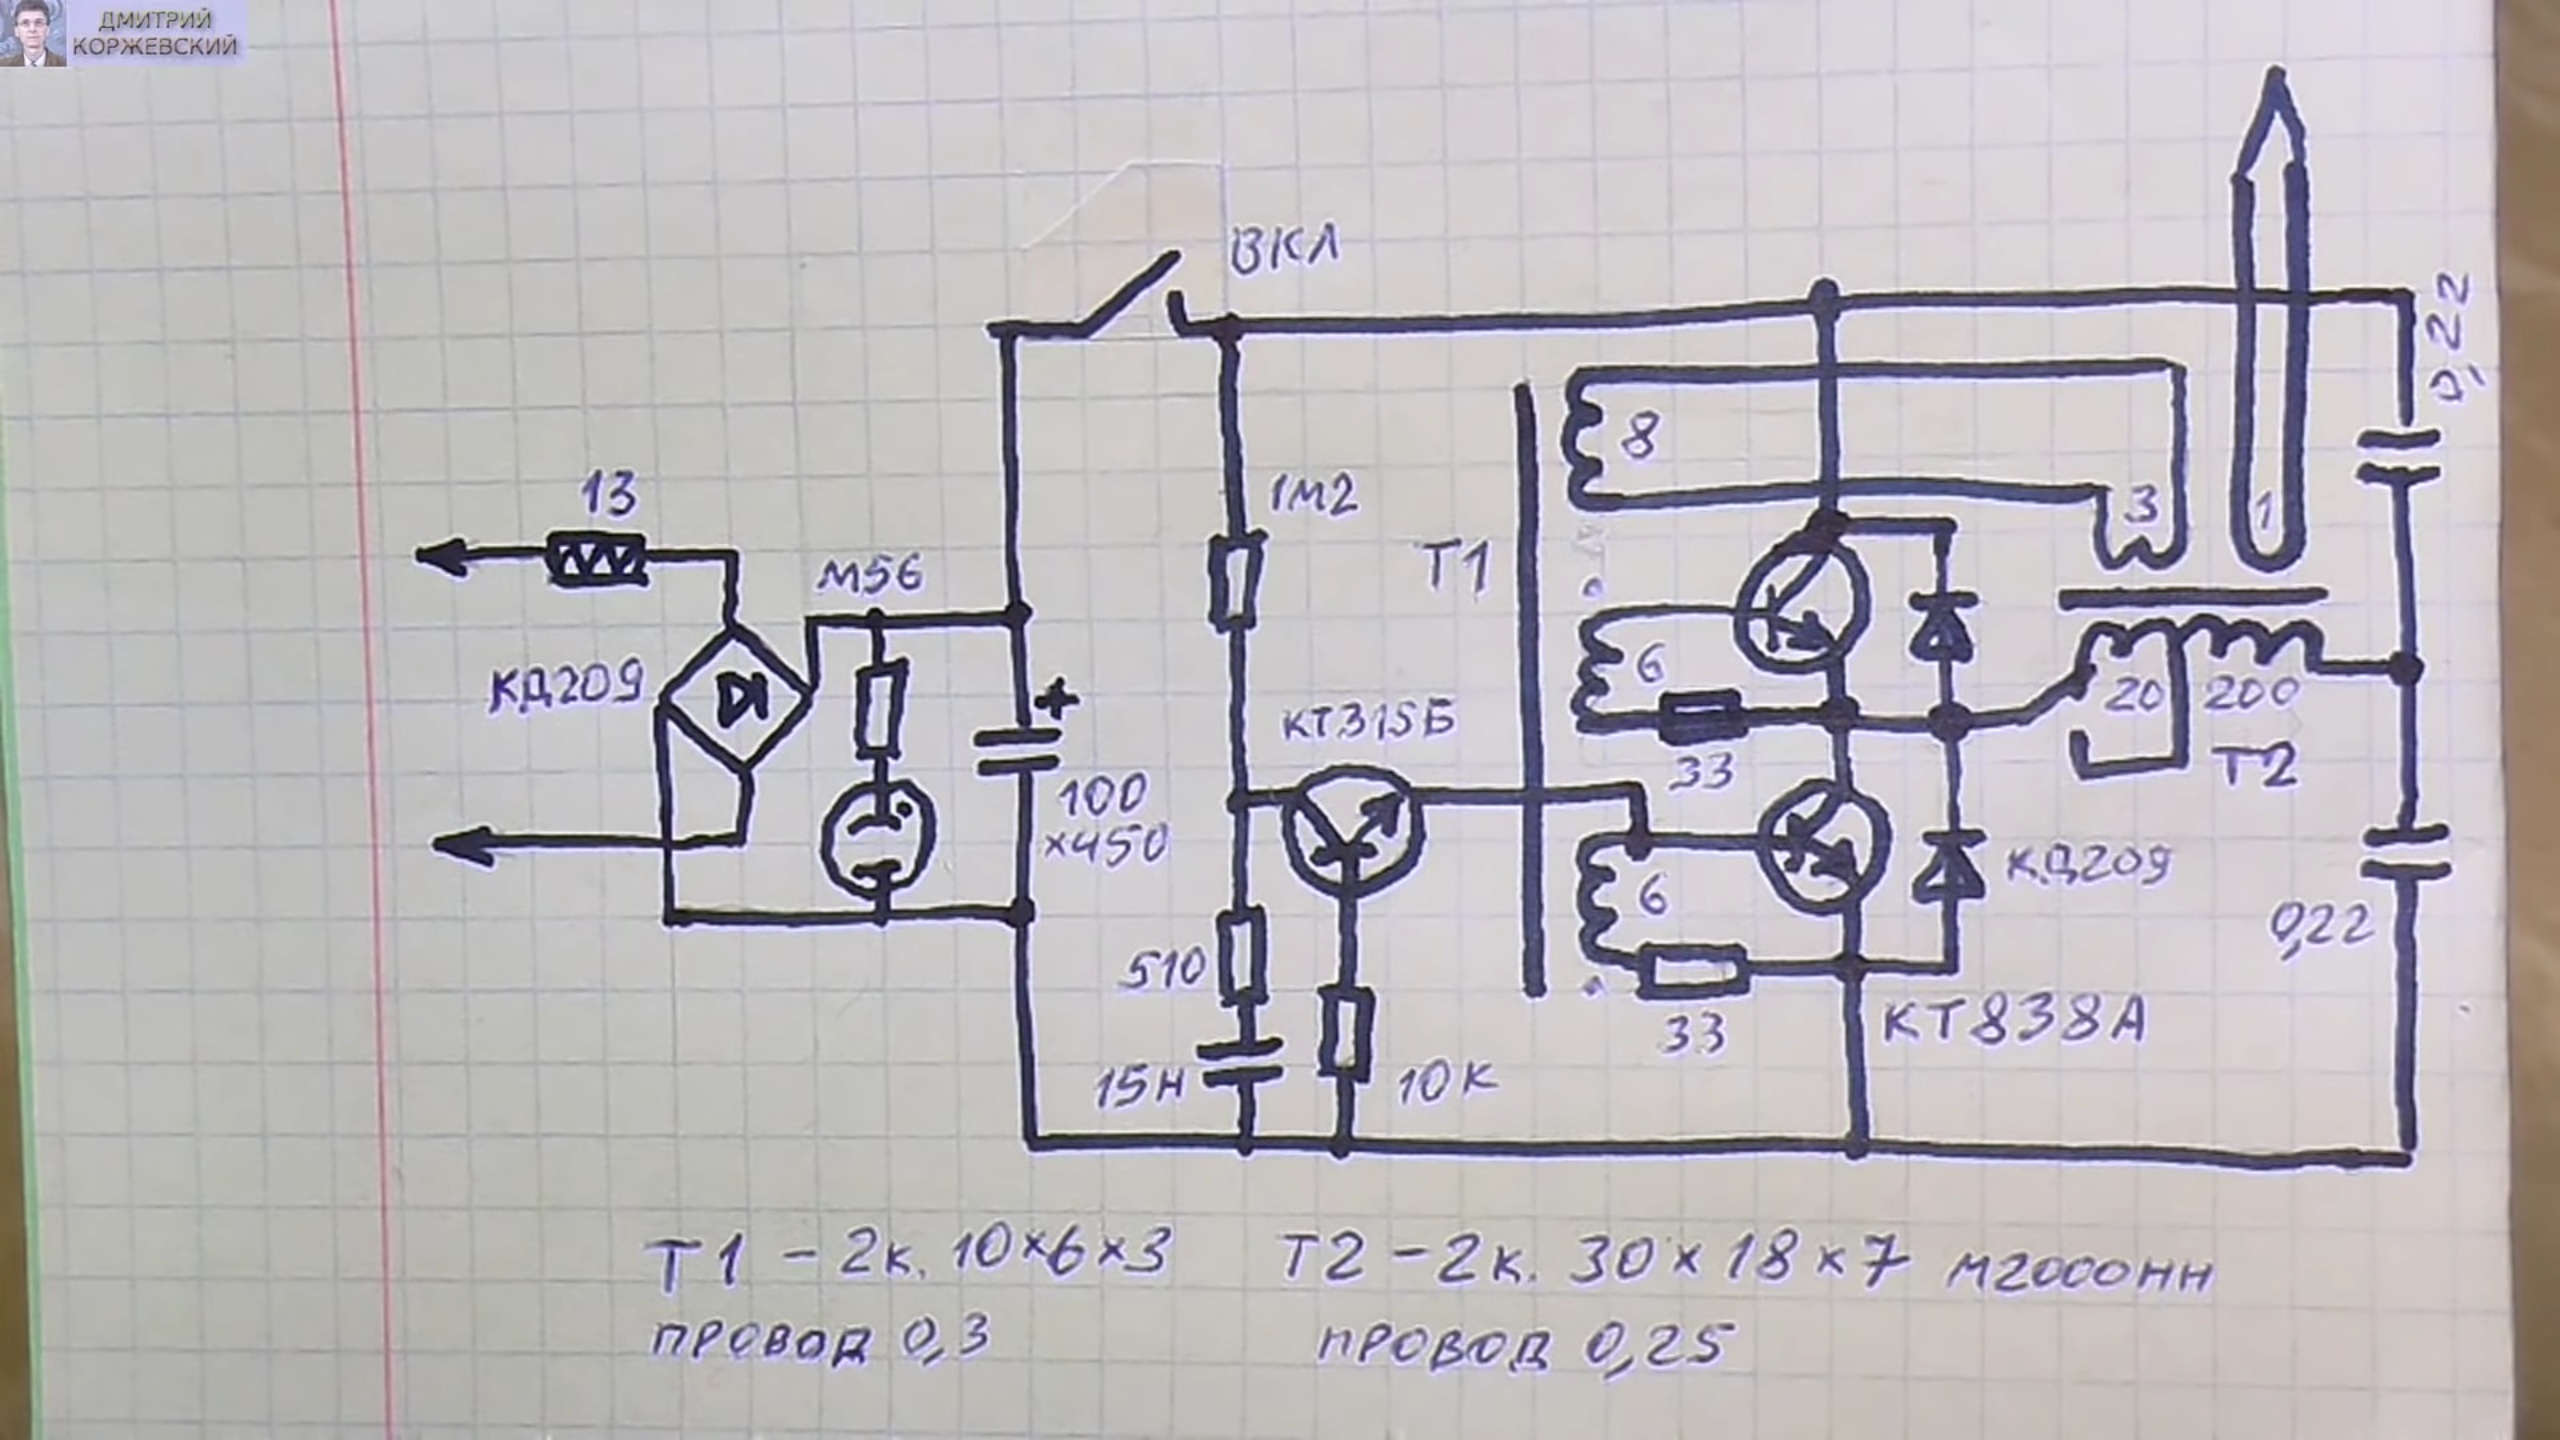 ДМИТРИЙ
КОРЖЕВСКИЙ
ВКЛ
0,22
8
13
1М2
3
1
Т1
М56
КД209
6
20
200
КТ315Б
33
Т2
+
100
х450
КД209
6
0,22
510
КТ838А
33
15Н
10К
Т1 - 2к. 10х6х3
провод 0,3
Т2 - 2к. 30х18х7 м2000нн
провод 0,25